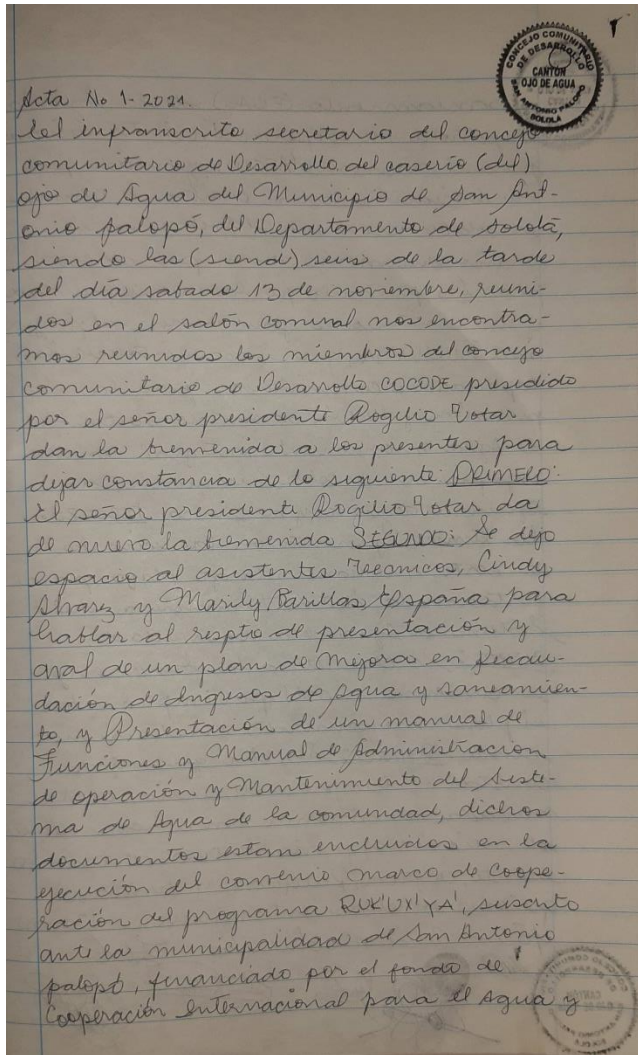 1
CONCEJO COMUNITARIO
DE DESARROLLO
CANTON
OJO DE AGUA
SAN ANTONIO PALOPO
SOLOLA
Acta No 1-2021.
El infranscrito secretario del concejo
comunitario de Desarrollo del caserío (del)
ojo de Agua del Municipio de San Ant-
onio palopó, del Departamento de Sololá,
siendo las (siend) seis de la tarde
del día sabado 13 de noviembre, reuni-
dos en el salón comunal nos encontra-
mos reunidos los miembros del concejo
comunitario de Desarrollo COCODE presidido
por el señor presidente Rogilio Yotar
dan la bienvenida a los presentes para
dejar constancia de lo siguiente: PRIMERO:
El señor presidente Rogilio Yotar da
de nuevo la bienvenida SEGUNDO: Se dejo
espacio al asistentes Tecnicos, Cindy
Alvarez y Marily Barillas España para
hablar al respto de presentación y
aval de un plan de Mejora en Recau-
dación de Ingresos de Agua y saneamien-
to, y Presentación de un manual de
Funciones y Manual de Administracion
de operación y Mantenimiento del Siste-
ma de Agua de la comunidad, dichos
documentos estam incluidos en la
ejecución del convenio marco de Coope-
ración del programa RUK'UX'YA', suscrito
ante la municipalidad de San Antonio
palopó, financiado por el fondo de
Cooperación Internacional para el Agua y